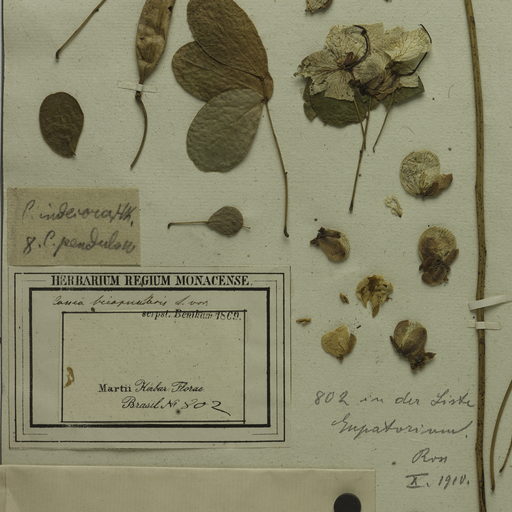 8. C. pendula
HERBARIUM REGIUM MONACENSE.
Cassia bicapsularis L. var.
scrpst. Bentham 1869.
Martii Herbar. Florae
Brasil. No. 802
802 in der Liste
Eupatorium.
Ross
X. 1910.